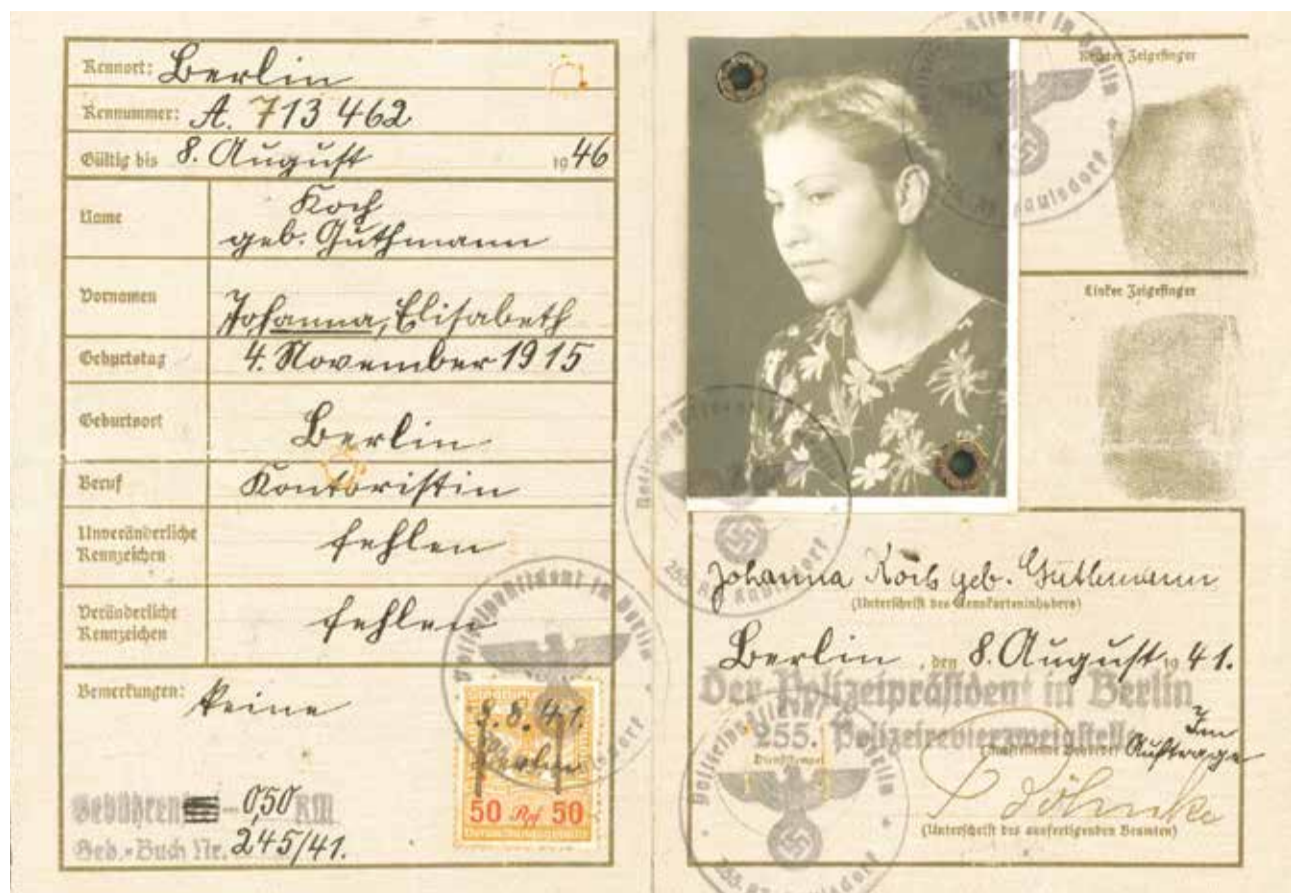 Kennort: Berlin
Kennummer: A. 713 462
Gültig bis 8. August 1946
Name Koch
geb. Guthmann
Vornamen Johanna, Elisabeth
Geburtstag 4. November 1915
Geburtsort Berlin
Beruf Kontoristin
Unveränderliche
Kennzeichen fehlen
Veränderliche
Kennzeichen fehlen
Bemerkungen: Keine
Gebühren - 0,50 RM
Geb.-Buch Nr. 245/41.
8.8.41.
Berlin
50 Rpf 50
Verwaltungsgebühr
Polizeipräsident in Berlin
Rechter Zeigefinger
Linker Zeigefinger
Polizeipräsident in Berlin
255.
Johanna Koch geb. Guthmann
(Unterschrift des Kennkarteninhabers)
Berlin, den 8. August 1941.
Der Polizeipräsident in Berlin
255. Polizeirevierzweigstelle
(Ausstellende Behörde)
Im
Auftrage
Dienststempel
(Unterschrift des ausfertigenden Beamten)
Polizeipräsident in Berlin
255.